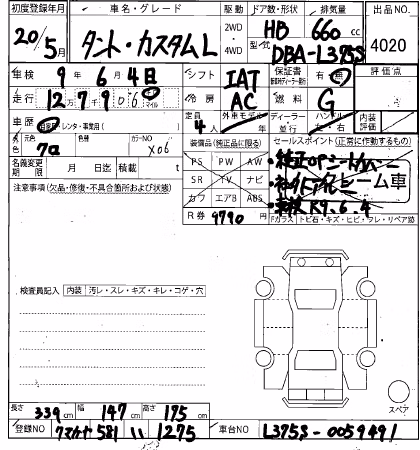 初度登録年月 車名・グレード 駆動 ドア数・形状 排気量 出品NO
20/5月 タント・カスタムL 2WD 4WD HB 660cc 4020
型式 DBA-L375S
車検 9年 6月 4日 シフト IAT 保証書 有 無 評価点
走行 127906 マイル 冷房 AC 燃料 G
車歴 自家用・レンタ・事業用( ) 定員 4人 外車モデル 年 ディーラー 並行 ハンドル 左・右 内装評価
色 元色 カラーNO X06 装備品(純正品に限る) セールスポイント(正常に作動するもの)
PS PW AW
名義変更期限 月 日 積載 t SR TV ナビ
注意事項(欠品・修復・不具合箇所および状態) カワ エアB ABS
車検R9.6.4
R券 9790 Fガラス トビ石・キズ・ヒビ・フレ・リペア跡
検査員記入 内装 汚レ・スレ・キズ・キレ・コゲ・穴
スペア
長さ 339cm 幅 147cm 高さ 175cm
登録NO 581 い 1275 車台NO L375S-0059491